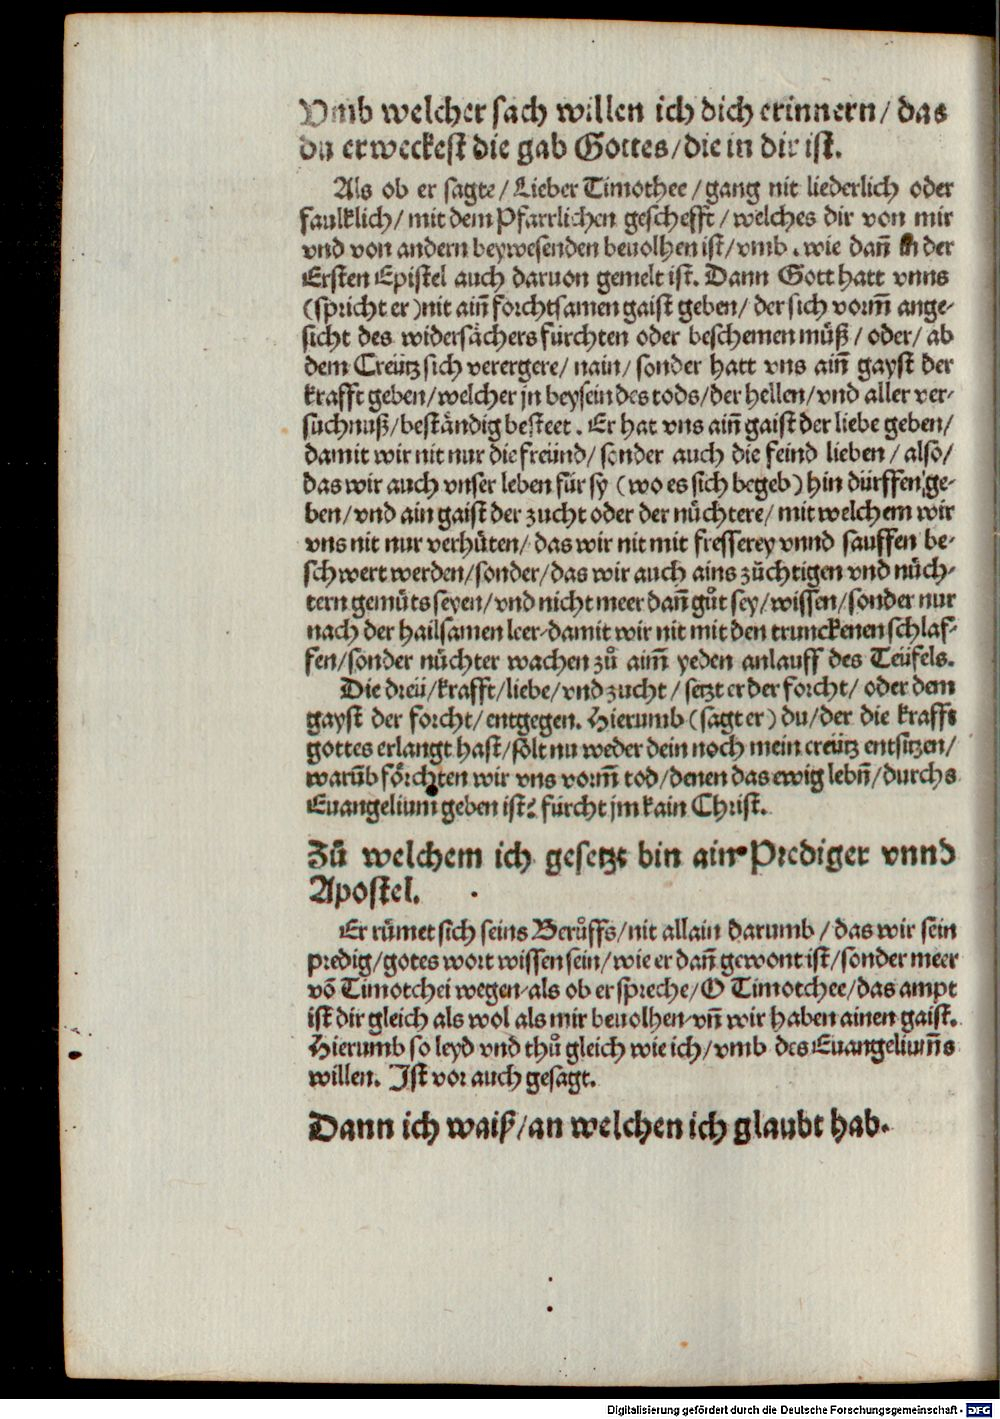 Vmb welcher sach willen ich dich erinnern/ das
du erweckest die gab Gottes/die in dir ist.
Als ob er sagte/Lieber Timothee/gang nit liederlich oder
faulklich/mit dem Pfarrlichen geschefft/welches dir von mir
vnd von andern beywesenden beuolhen ist/vmb. wie dañ in der
Ersten Epistel auch daruon gemelt ist. Dann Gott hatt vnns
(spricht er)nit aiñ forchtsamen gaist geben/der sich vorm̃ ange-
sicht des widersåchers fürchten oder beschemen müß/oder/ab
dem Creütz sich verergere/nain/sonder hatt vns aiñ gayst der
krafft geben/welcher jn beysein des tods/der hellen/vnd aller ver-
suchnuß/beståndig besteet. Er hat vns aiñ gaist der liebe geben/
damit wir nit nur die freünd/sonder auch die feind lieben/also/
das wir auch vnser leben für sy (wo es sich begeb) hin dürffen ge-
ben/vnd ain gaist der zucht oder der nüchtere/mit welchem wir
vns nit nur verhüten/das wir nit mit fresserey vnnd sauffen be-
schwert werden/sonder/das wir auch ains züchtigen vnd nüch-
tern gemüts seyen/vnd nicht meer dañ gůt sey/wissen/sonder nur
nach der hailsamen leer-damit wir nit mit den trunckenen schlaf-
fen/sonder nüchter wachen zů aim̃ yeden anlauff des Teüfels.
Die dreü/krafft/liebe/vnd zucht/setzt er der forcht/oder dem
gayst der forcht/entgegen. Hierumb (sagt er) du/der die krafft
gottes erlangt hast/solt nu weder dein noch mein creütz entsitzen/
warũb förchten wir vns vorm̃ tod/denen das ewig lebñ/durchs
Euangelium geben ist? fürcht jm kain Christ.
Zů welchem ich gesetzt bin ain Prediger vnnd
Apostel.
Er rümet sich seins Berůffs/nit allain darumb/das wir sein
predig/gotes wort wissen sein/wie er dañ gewont ist/sonder meer
võ Timotchei wegen-als ob er spreche/O Timotchee/das ampt
ist dir gleich als wol als mir beuolhen-vñ wir haben ainen gaist.
Hierumb so leyd vnd thů gleich wie ich/vmb des Euangeliums̃
willen. Ist vor auch gesagt.
Dann ich waiß/an welchen ich glaubt hab.
Digitalisierung gefördert durch die Deutsche Forschungsgemeinschaft - DFG